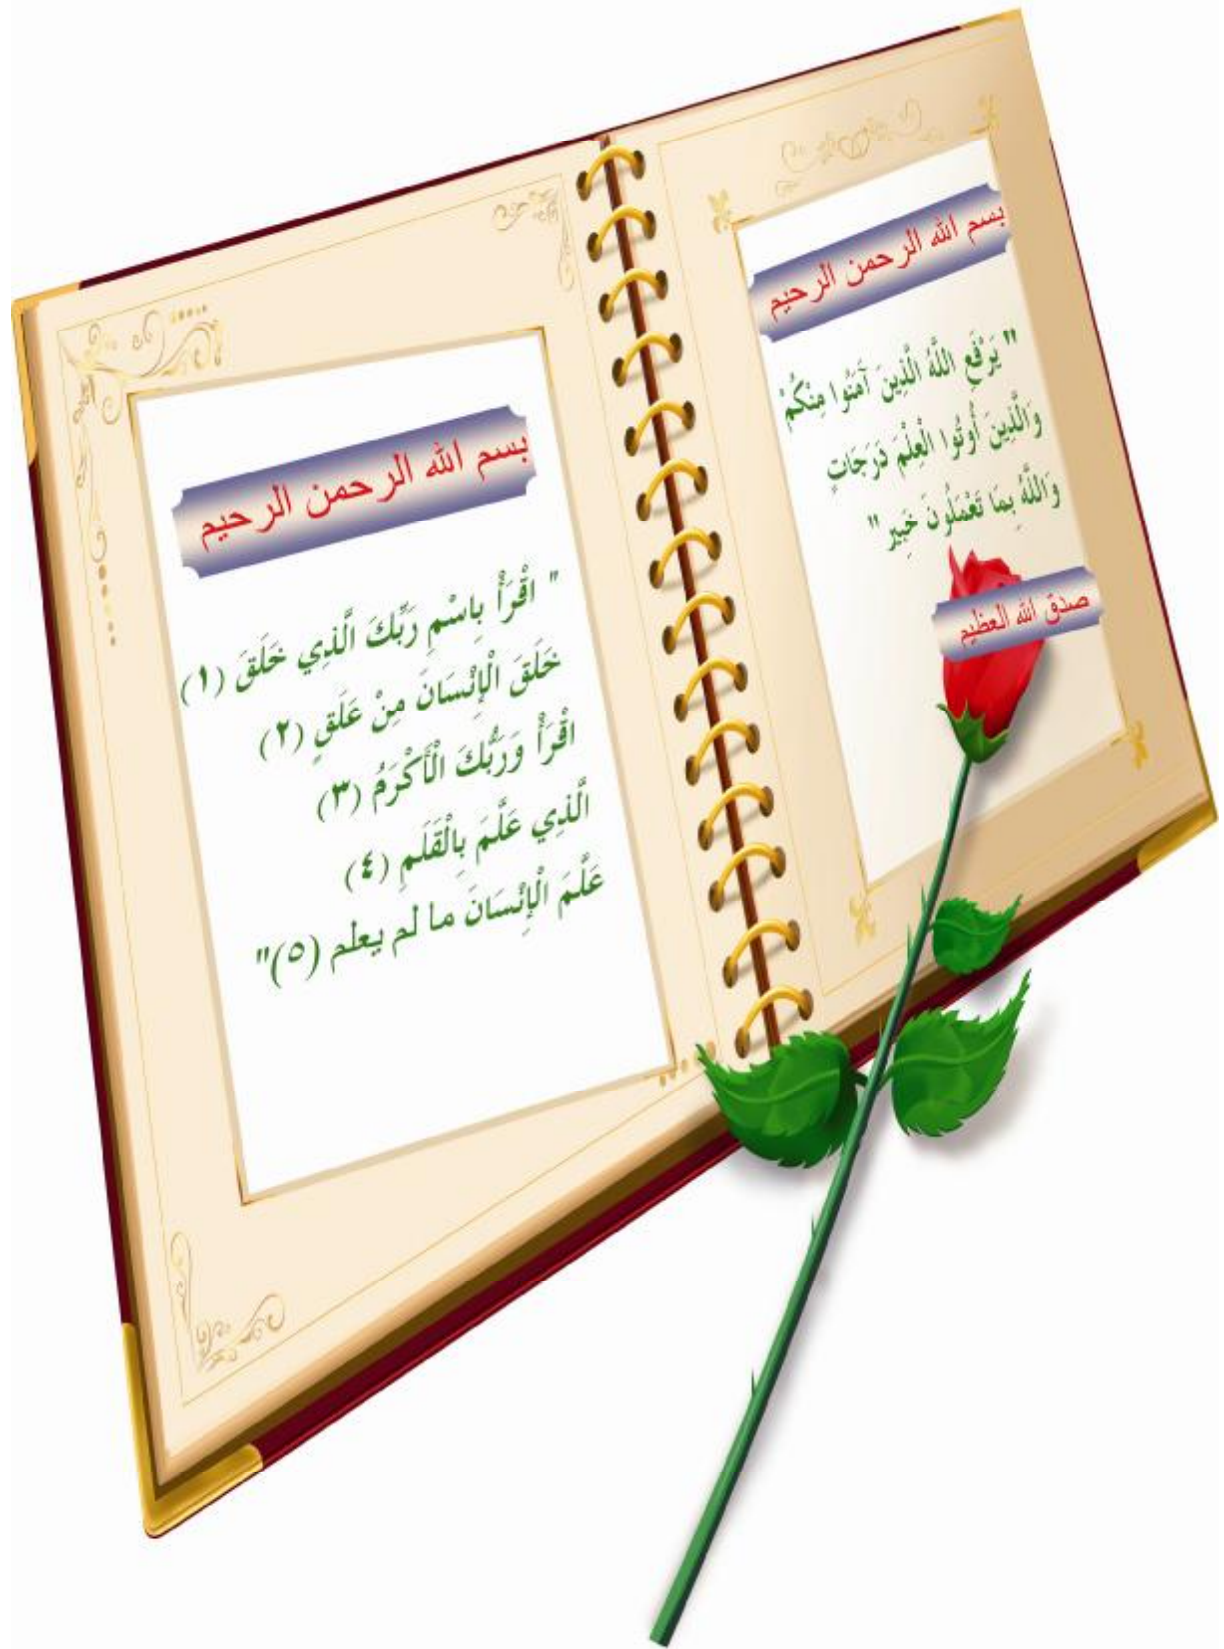 بسم الله الرحمن الرحيم
" يَرْفَعِ اللَّهُ الَّذِينَ آَمَنُوا مِنْكُمْ
وَالَّذِينَ أُوتُوا الْعِلْمَ دَرَجَاتٍ
وَاللَّهُ بِمَا تَعْمَلُونَ خَبِير"
صدق الله العظيم
بسم الله الرحمن الرحيم
" اقْرَأْ بِاسْمِ رَبِّكَ الَّذِي خَلَقَ (١)
خَلَقَ الْإِنْسَانَ مِنْ عَلَقٍ (٢)
اقْرَأْ وَرَبُّكَ الْأَكْرَمُ (٣)
الَّذِي عَلَّمَ بِالْقَلَمِ (٤)
عَلَّمَ الْإِنْسَانَ ما لم يعلم (٥)"